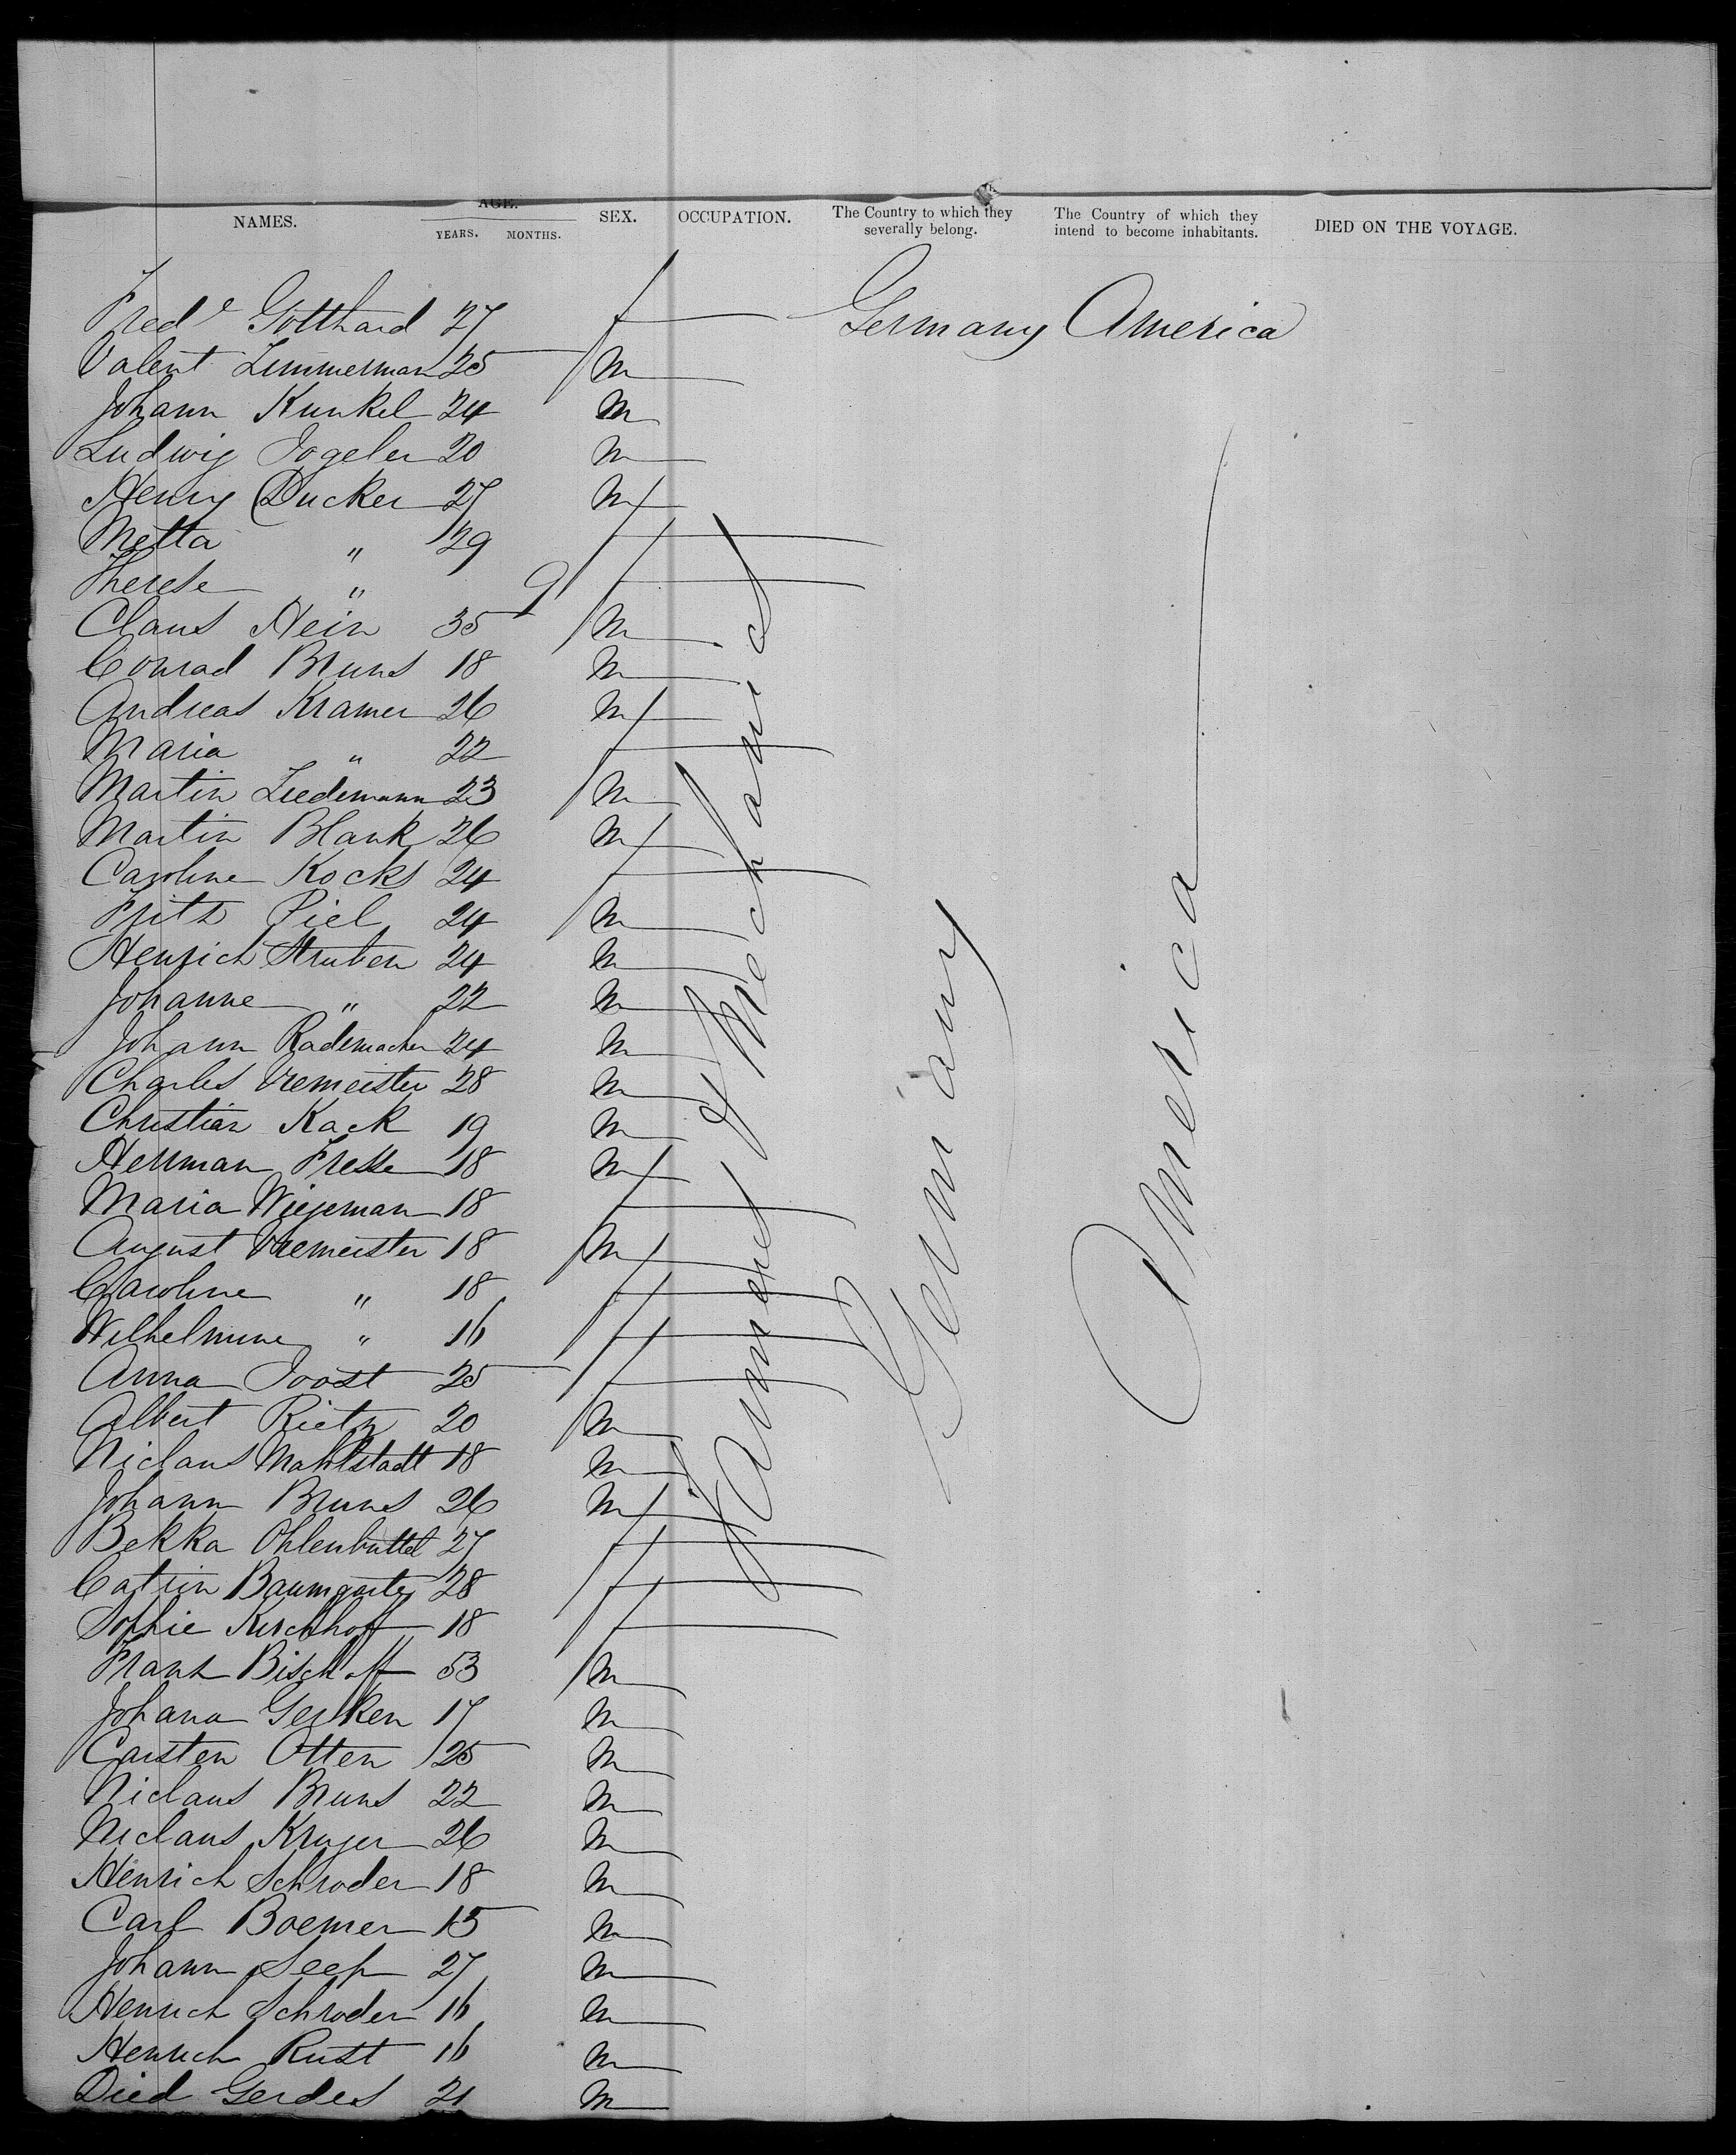 NAMES. AGE. YEARS. MONTHS. SEX. OCCUPATION. The Country to which they severally belong. The Country of which they intend to become inhabitants. DIED ON THE VOYAGE.
Fredᵉ Gotthard 27 f Germany America
Valent Zimmerman 25 m
Johann Kunkel 24 m
Ludwig Vogeler 20 m
Henry Ducker 27 m
Metta " 29 f
Therese " 9 f
Claus Hein 35 m
Conrad Bruns 18 m
Andreas Kramer 26 m
Maria " 22 f
Martin Ziedemann 23 m
Martin Blank 26 m
Caroline Kocks 24 f
Fritz Piel 24 m
Henrich Struben 24 m
Johanne " 22 m
Johann Rademacher 24 m
Charles Vremeister 28 m
Christian Kack 19 m
Herrman Frese 18 m
Maria Wiegeman 18 f
August Vremeister 18 m
Caroline " 18 f
Wilhelmine " 16 f
Anna Joost 25 f
Albert Rietz 20 m
Niclaus Mahlstadt 18 m
Johann Bruns 26 m
Bekka Ohlenbuttel 27 f
Catrin Baumgarten 28 f
Sophie Kirchhoff 18 f
Frank Bischoff 53 m
Johann Gerken 17 m
Carsten Otten 25 m
Niclaus Bruns 22 m
Niclaus Kruger 26 m
Henrich Schroder 18 m
Carl Boemer 15 m
Johann Seep 27 m
Henrich Schroder 16 m
Henrich Rust 16 m
Died Gerdes 21 m
Farmers & Mechanics
Germany
America